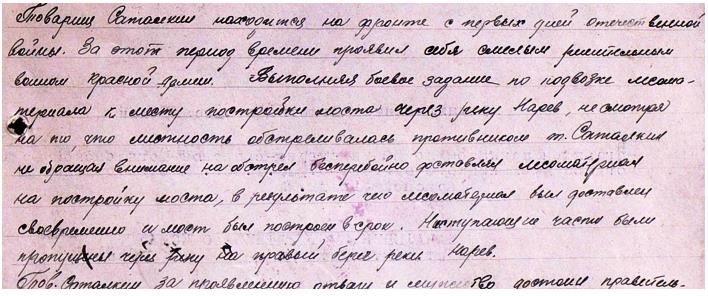 Товарищ Саталкин находится на фронте с первых дней отечественной
войны. За этот период времени проявил себя смелым решительным
воином красной армии. Выполняя боевое задание по подвозке лесома-
териала к месту постройки моста через реку Нарев, не смотря
на то, что мистность обстреливалась противником т. Саталкин
не обращая внимание на обстрел бесперебойно доставлял лесоматериал
на постройку моста, в результате чего лесоматериал был доставлен
своевременно и мост был построен в срок. Наступающие части были
пропущены через реку на правый берег реки Нарев.
Тов. Саталкин за проявленную отвагу и мужество достоин правитель-